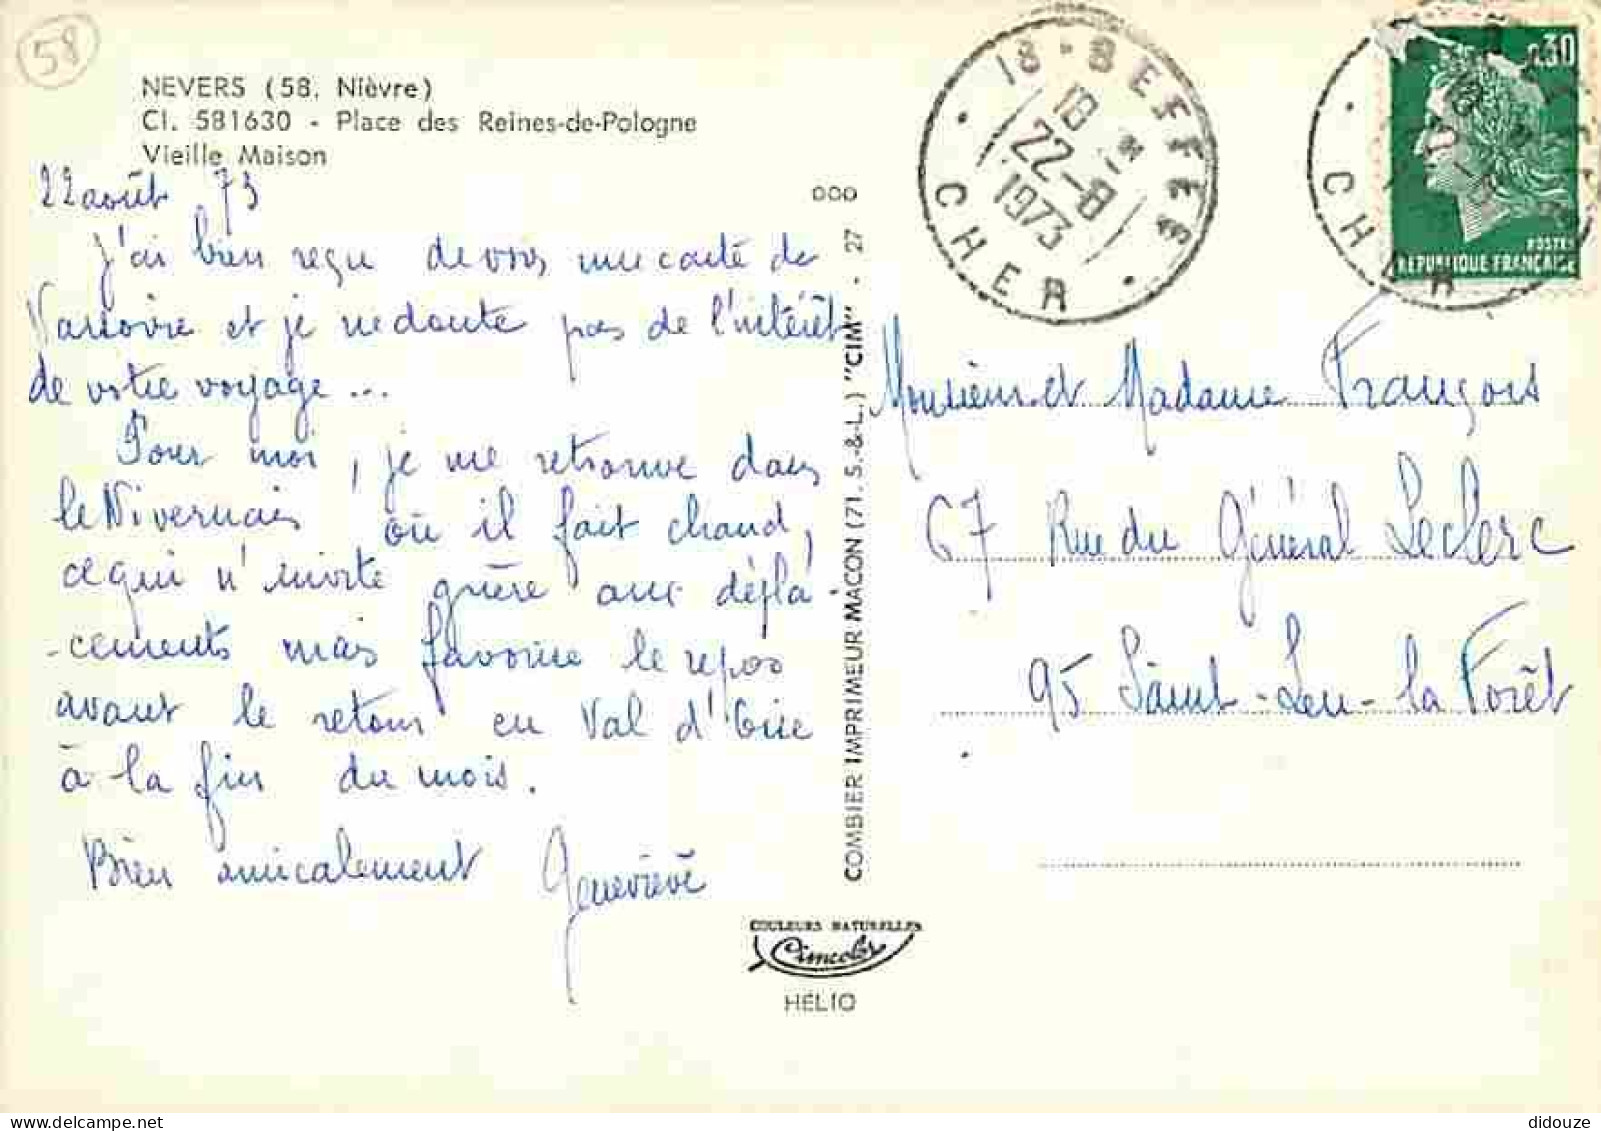 58
NEVERS (58. Nièvre)
Cl. 581630 - Place des Reines-de-Pologne
Vieille Maison
22 août 73
J'ai bien reçu de vous une carte de
Varsovie et je ne doute pas de l'intérêt
de votre voyage...
Pour moi, je me retrouve dans
le Nivernais où il fait chaud,
ce qui n'invite guère aux dépla-
-cements mais favorise le repos
avant le retour en Val d'Oise
à la fin du mois.
Bien amicalement Geneviève
COMBIER IMPRIMEUR MACON (71. S.-&-L.) "CIM" - 27
COULEURS NATURELLES
Cimcolor
HÉLIO
18 - BEFFES
18
22-8
1973
CHER
0.30
POSTES
REPUBLIQUE FRANÇAISE
CHER
Monsieur et Madame François
67 Rue du Général Leclerc
95 Saint-Leu-la Forêt
delcampe.net
didouze